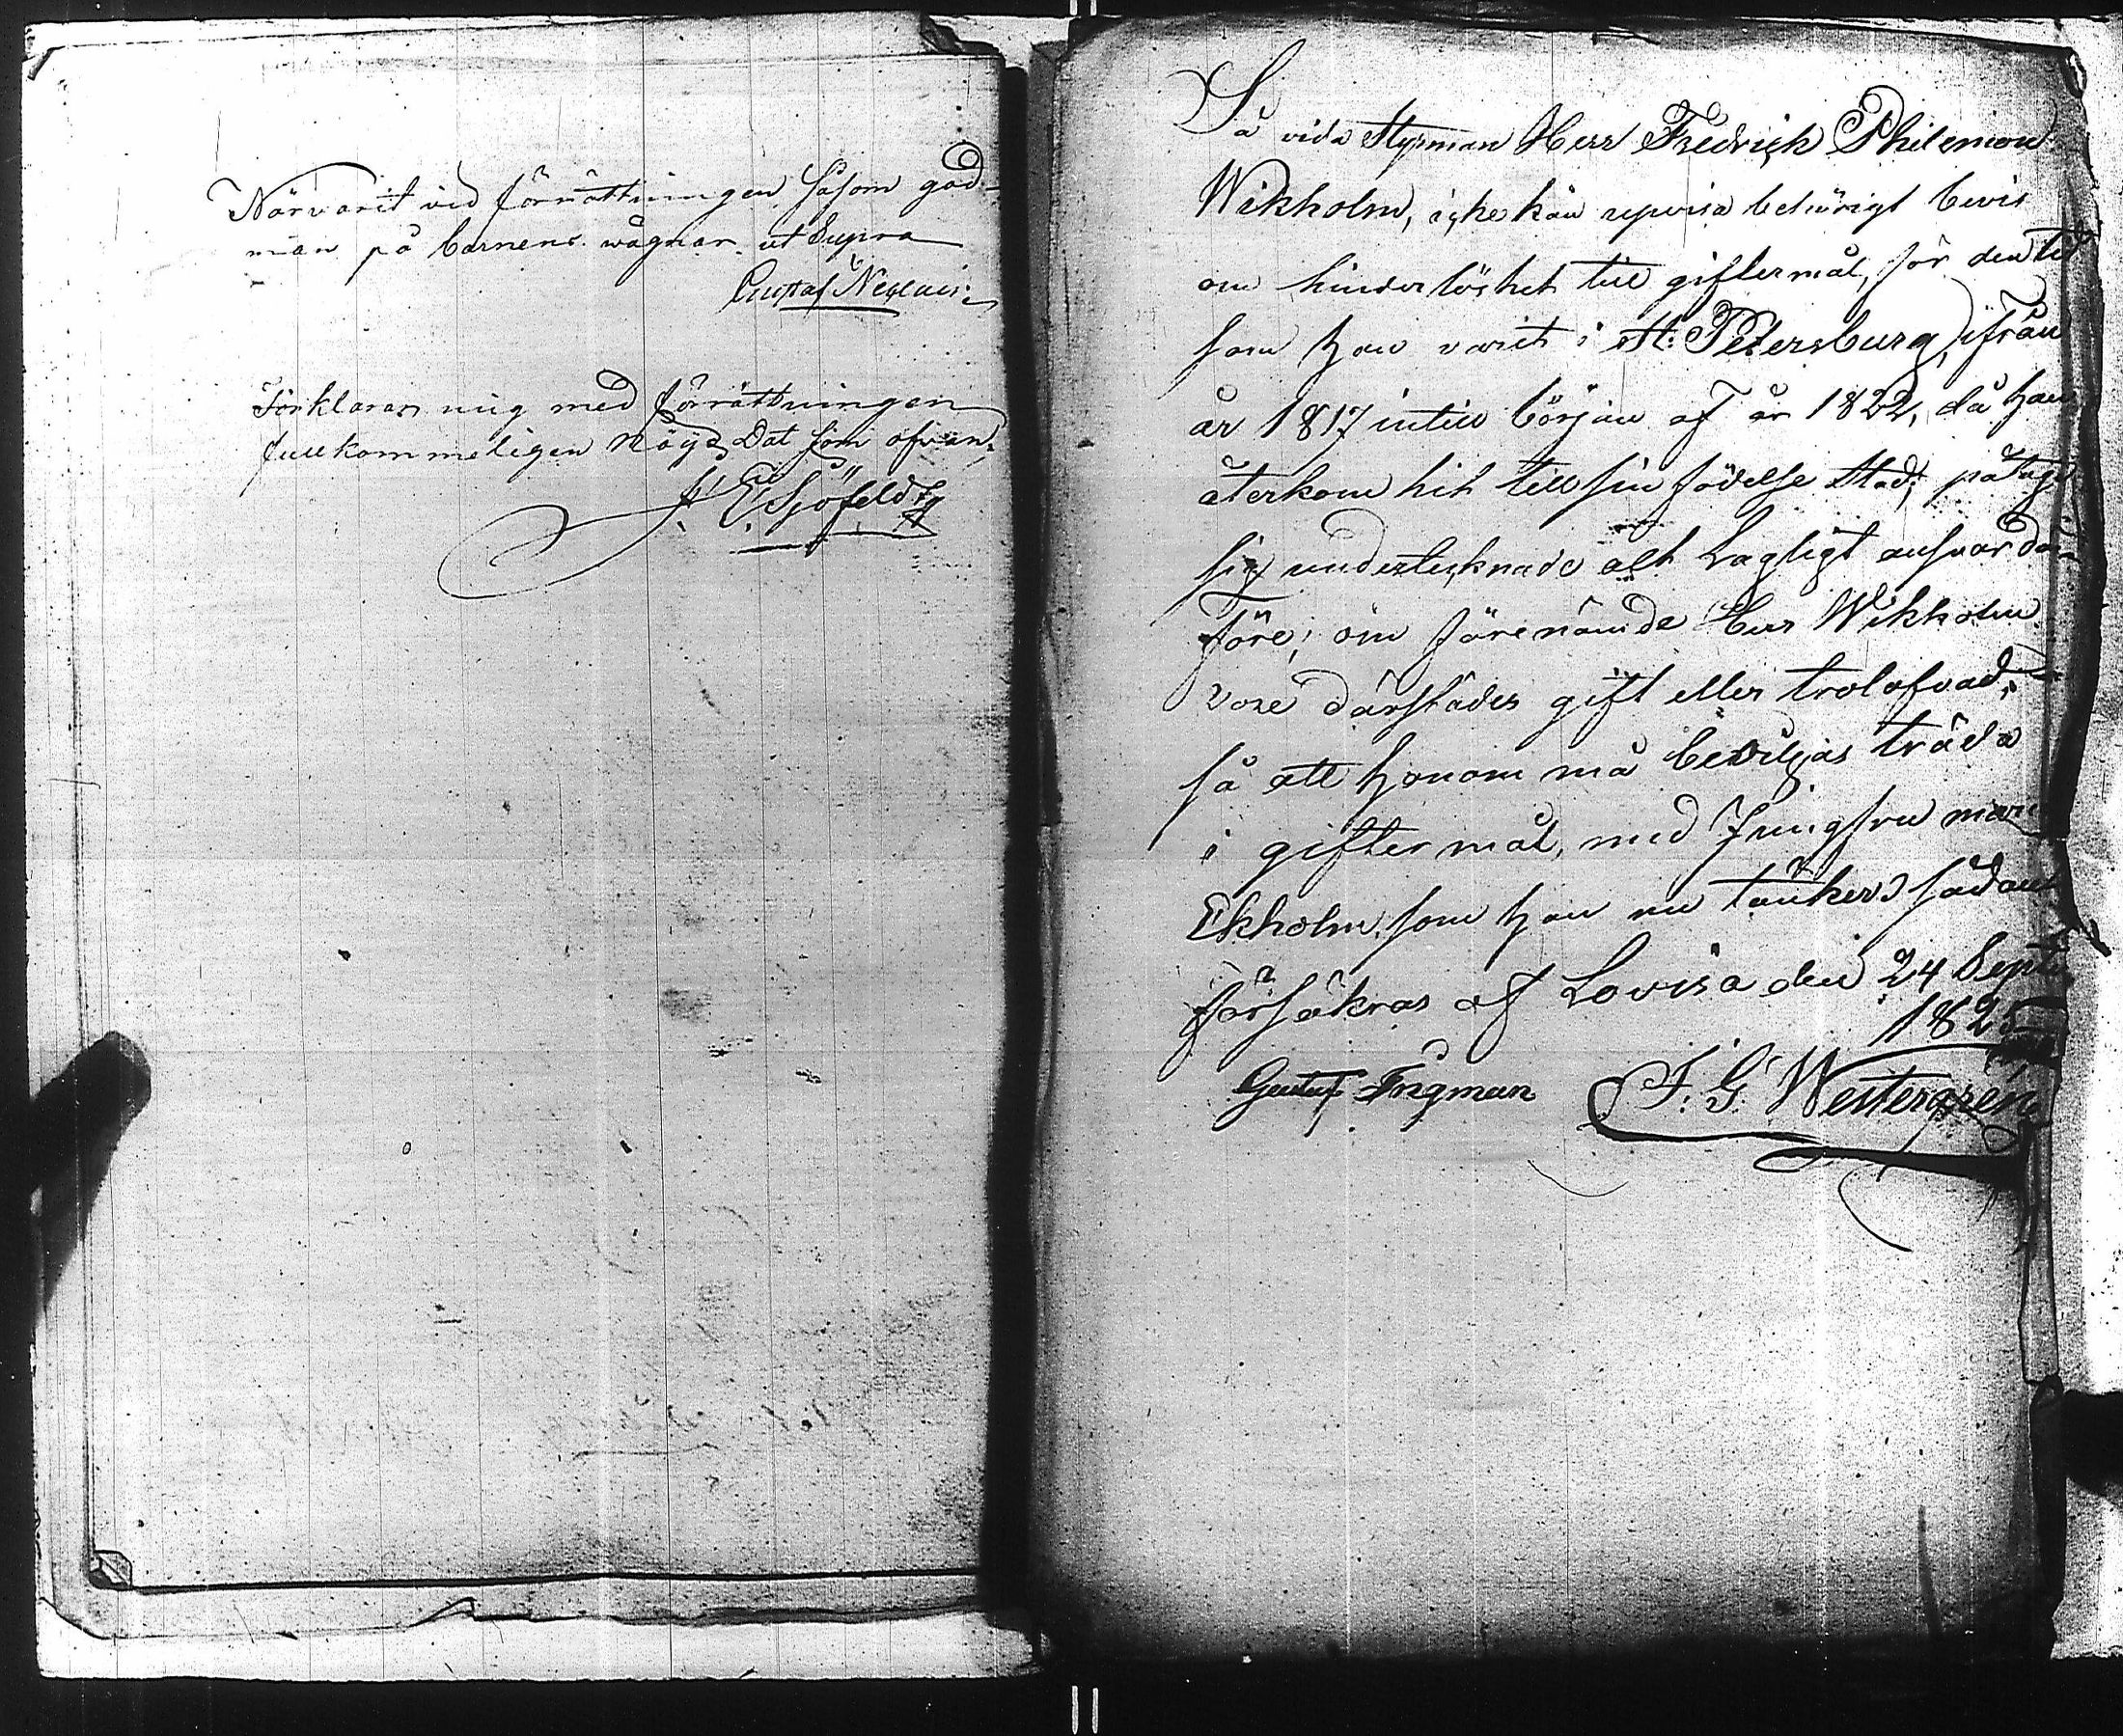 Närvarit vid förrättningen såsom god-
man på barnens wägnar ut Supra
Gustaf
Förklarar mig med förrättningen
fullkommeligen nöyd Dat som ofvan.
E. Sjöfeldt
Så vida Styrman Herr Fredrick Philemon
Wikholm, icke kan upvisa behörigt bevis
om hinderlöshet till giftermål, för den tid
som han varit i St: Petersburg, ifrån
år 1817 intill början af år 1822, då han
återkom hit till sin födelse Stad; påtager
sig undertecknade alt Lagligt ansvar där
före; om förenämde Herr Wikholm
vore därstädes gift eller trolofvad,
så att honom må beviljas träda
i giftermål, med Jungfru Mari
Ekholm, som han nu tänker; sådant
försäkras af Lovisa den 24 Septe
1825
Gustaf Ingman J. G. Westergrén